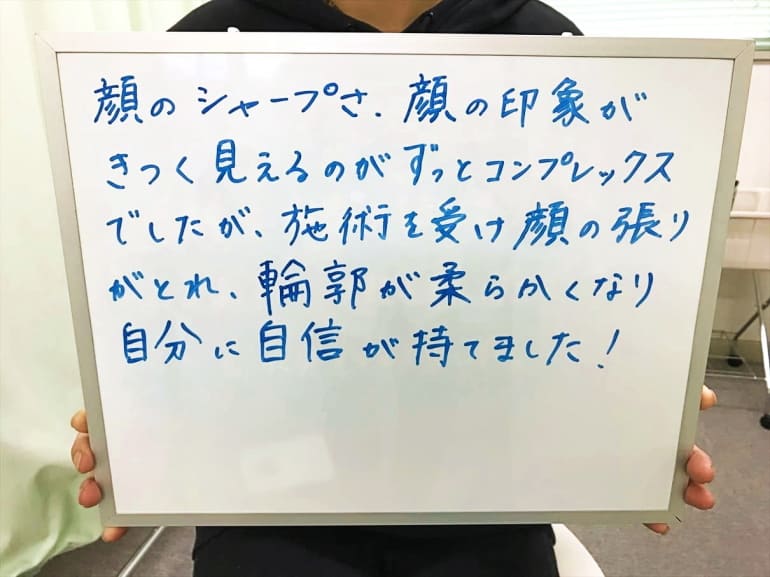 顔のシャープさ、顔の印象が
きつく見えるのがずっとコンプレックス
でしたが、施術を受け顔の張り
がとれ、輪郭が柔らかくなり
自分に自信が持てました!